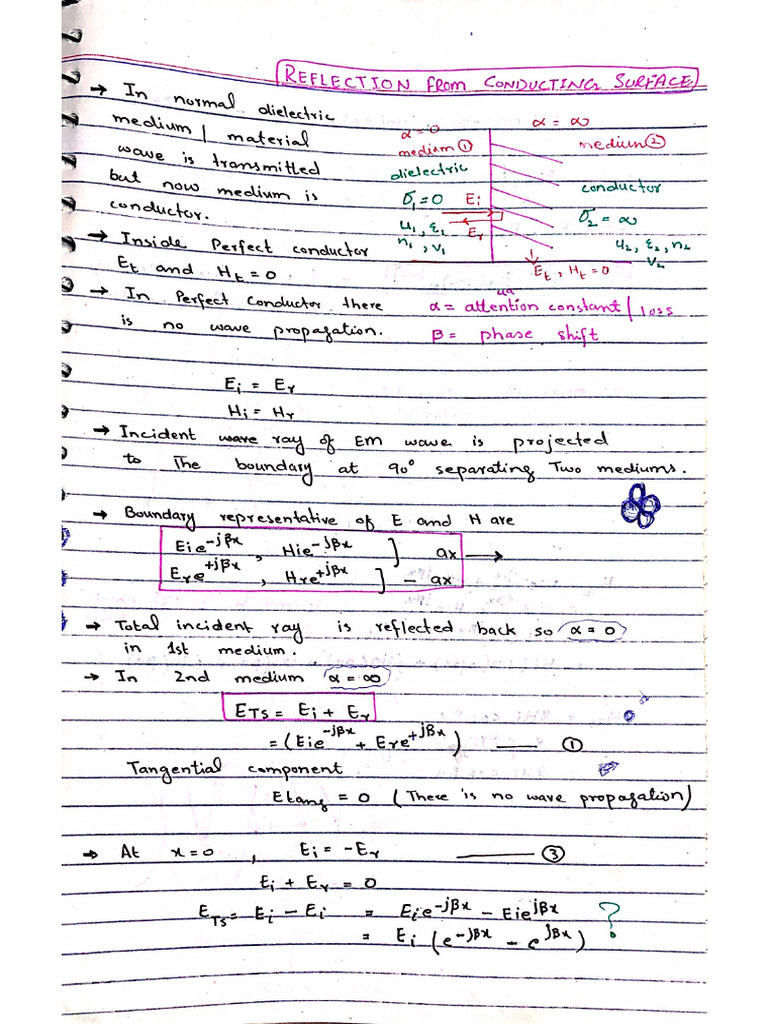 REFLECTION from CONDUCTING SURFACE
→ In normal dielectric
medium / material
wave is transmitted
but now medium is
conductor.
α = 0
medium ①
dielectric
σ₁ = 0
μ₁, ε₁
n₁, v₁
Ei
Er
α = ∞
medium ②
conductor
σ₂ = ∞
μ₂, ε₂, n₂
v₂
Et, Ht = 0
→ Inside Perfect conductor
Et and Ht = 0
→ In Perfect Conductor there
is no wave propagation.
ua
α = attention constant / loss
β = phase shift
Ei = Er
Hi = Hr
→ Incident wave ray of EM wave is projected
to The boundary at 90° separating Two mediums.
→ Boundary representative of E and H are
Eie^-jβx, Hie^-jβx ] ax →
Ere^+jβx, Hre^+jβx ] - ax
→ Total incident ray is reflected back so α = 0
in 1st medium.
→ In 2nd medium α = ∞
ETS = Ei + Er
= (Eie^-jβx + Ere^+jβx) — ①
Tangential component
Etang = 0 (There is no wave propagation)
→ At x=0, Ei = -Er — ③
Ei + Er = 0
ETS = Ei - Ei = Eie^-jβx - Eie^jβx ?
= Ei (e^-jβx - e^jβx)